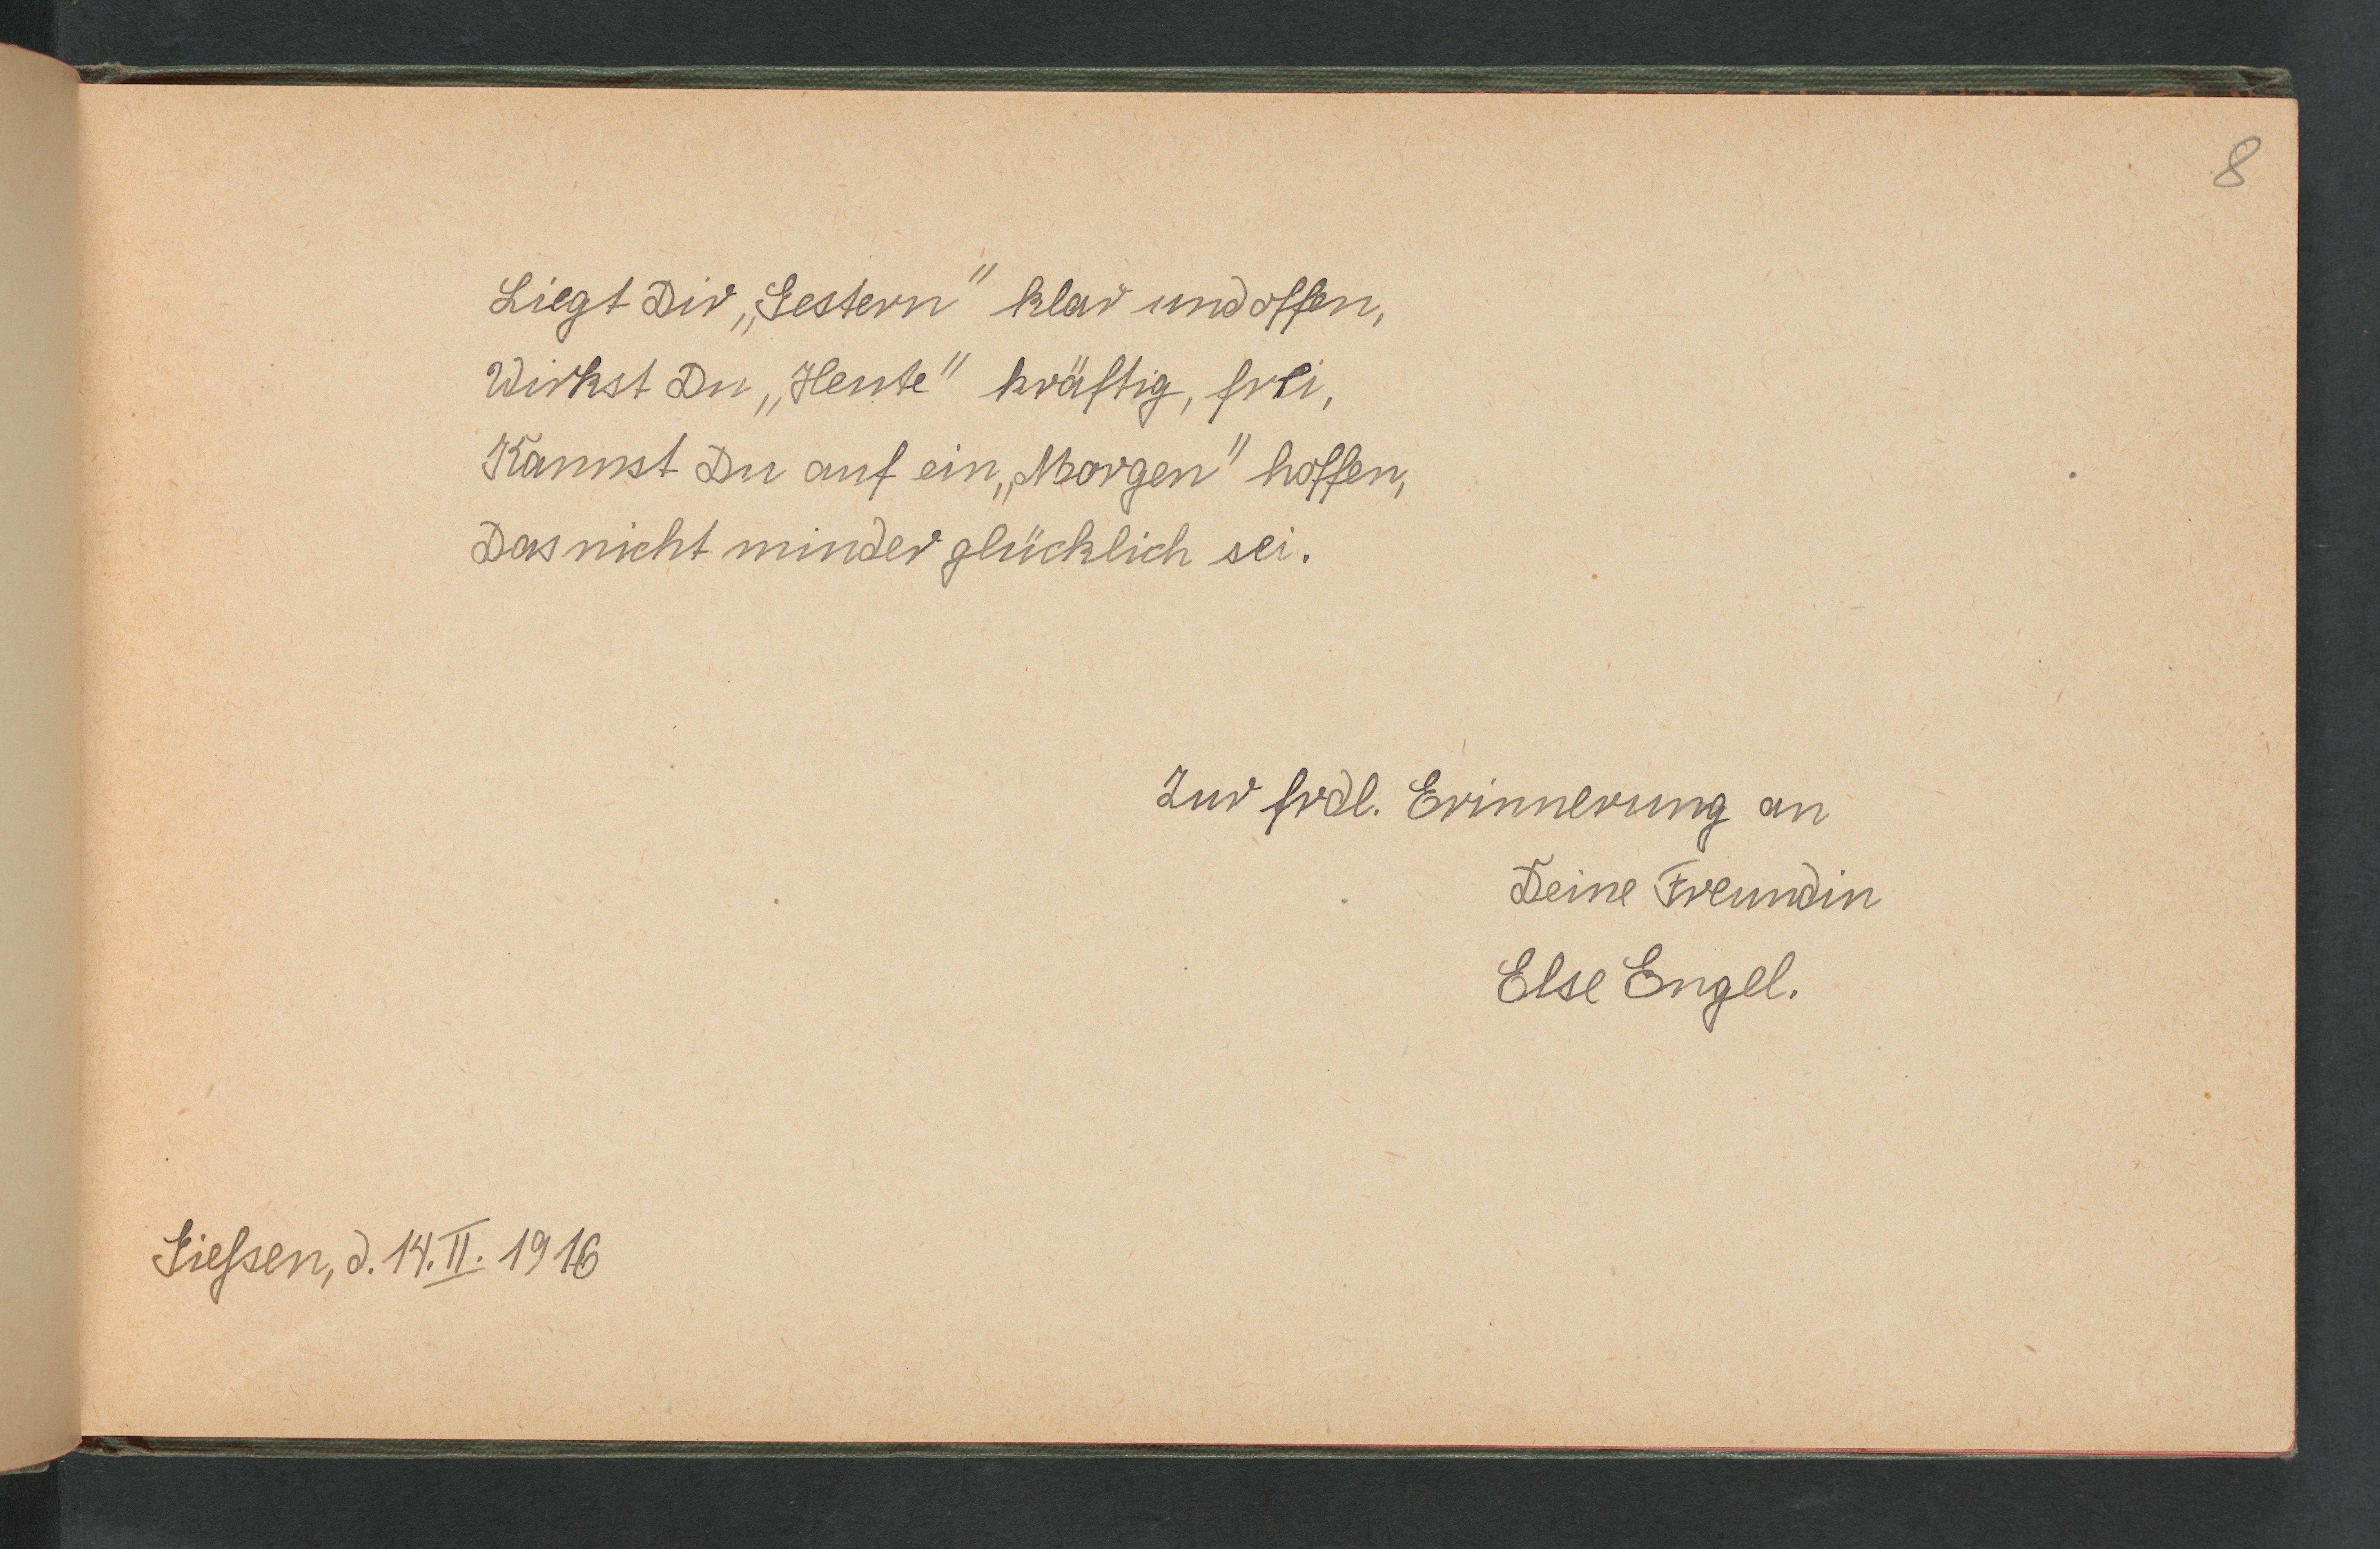 8
Liegt Dir „Gestern" klar und offen,
Wirkst Du „Heute" kräftig, frei,
Kannst Du auf ein „Morgen" hoffen,
Das nicht minder glücklich sei.
Zur frdl. Erinnerung an
Deine Freundin
Else Engel.
Gießen, d. 14. II. 1916